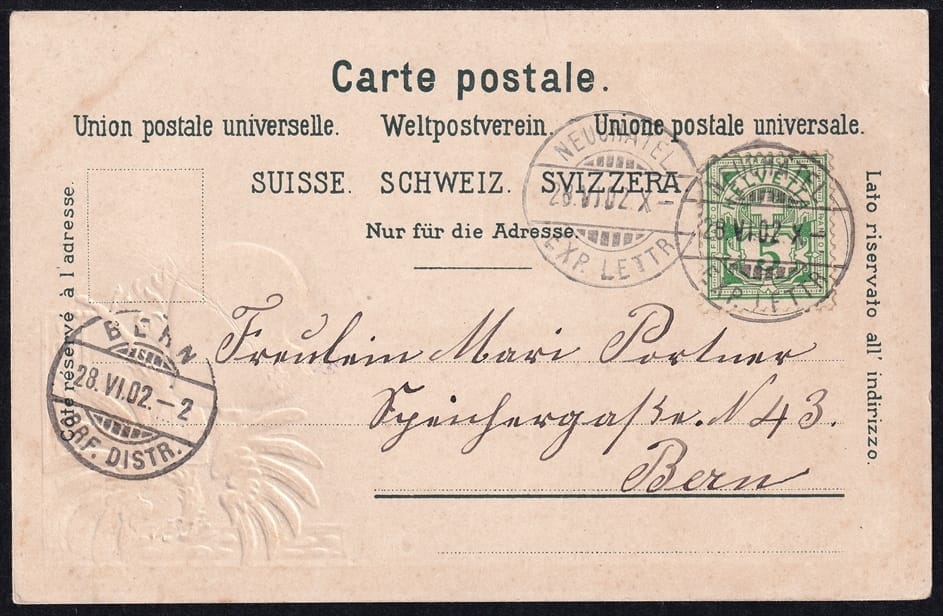 Carte postale.
Union postale universelle. Weltpostverein. Unione postale universale.
SUISSE. SCHWEIZ. SVIZZERA.
Nur für die Adresse.
Côté réservé à l'adresse.
Lato riservato all' indirizzo.
NEUCHATEL
28.VI.02.X–
EXP. LETTR.
HELVETIA
5
28.VI.02.X–
EXP. LETTR.
BERN
28.VI.02.–2
BRF. DISTR.
Fräulein Mari Portner
Speichergaße. N 43.
Bern